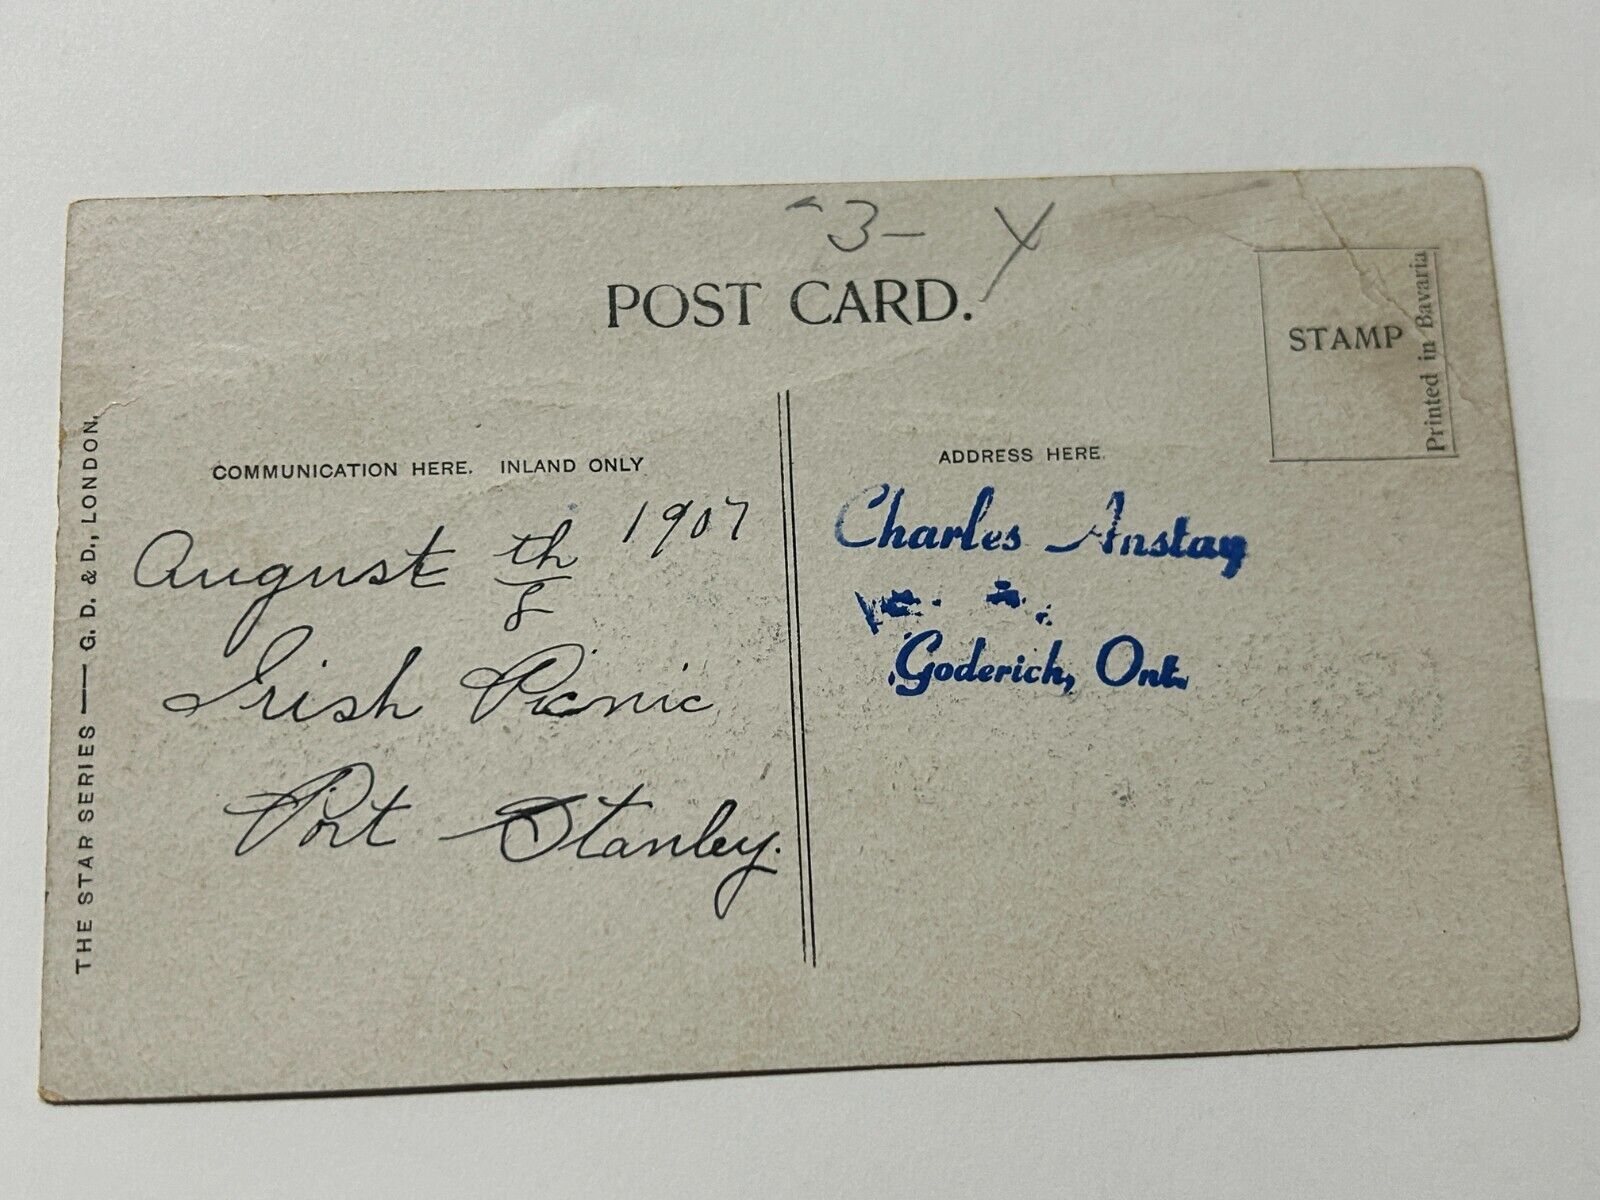 3-
POST CARD.
STAMP
Printed in Bavaria
THE STAR SERIES — G. D. & D., LONDON.
COMMUNICATION HERE. INLAND ONLY
August th 1907
8
Irish Picnic
Port Stanley.
ADDRESS HERE.
Charles Anstay
Goderich, Ont.